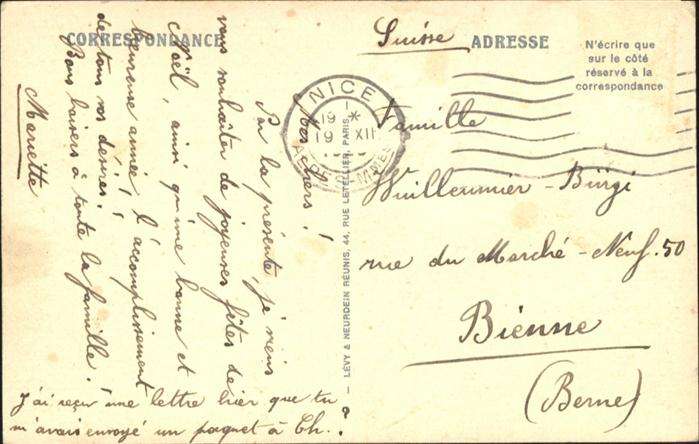 CORRESPONDANCE
Mes chers!
Par la présente, je viens
vous souhaiter de joyeuses fêtes de
Noël, ainsi qu'une bonne et
heureuse année, l'accomplissement
de tous vos désirs!
Bons baisers à toute la famille!
Mariette
J'ai reçu une lettre hier que tu
m'avais envoyé un paquet à Ch. ?
NICE
19 *
19 XII
LÉVY & NEURDEIN RÉUNIS, 44, RUE LETELLIER, PARIS
Suisse
ADRESSE
N'écrire que
sur le côté
réservé à la
correspondance
Famille
Wuilleumier - Bürgi
rue du Marché-Neuf. 50
Bienne
(Berne)